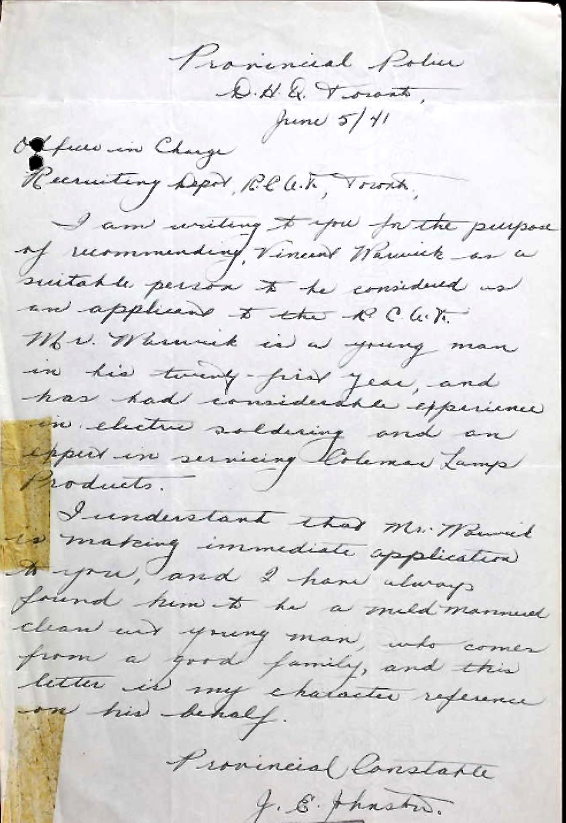 Provincial Police
D.H.Q. Toronto,
June 5/41
Officer in Charge
Recruiting Depot, R.C.A.F., Toronto,
I am writing to you for the purpose
of recommending, Vincent Warwick as a
suitable person to be considered as
an applicant to the R.C.A.F.
Mr. Warwick is a young man
in his twenty-first year, and
has had considerable experience
in electric soldering and an
expert in servicing Coleman Lamp
Products.
I understand that Mr. Warwick
is making immediate application
to you, and I have always
found him to be a mild mannered
clean cut young man, who comes
from a good family, and this
letter is my character reference
on his behalf.
Provincial Constable
J. E. Johnston.